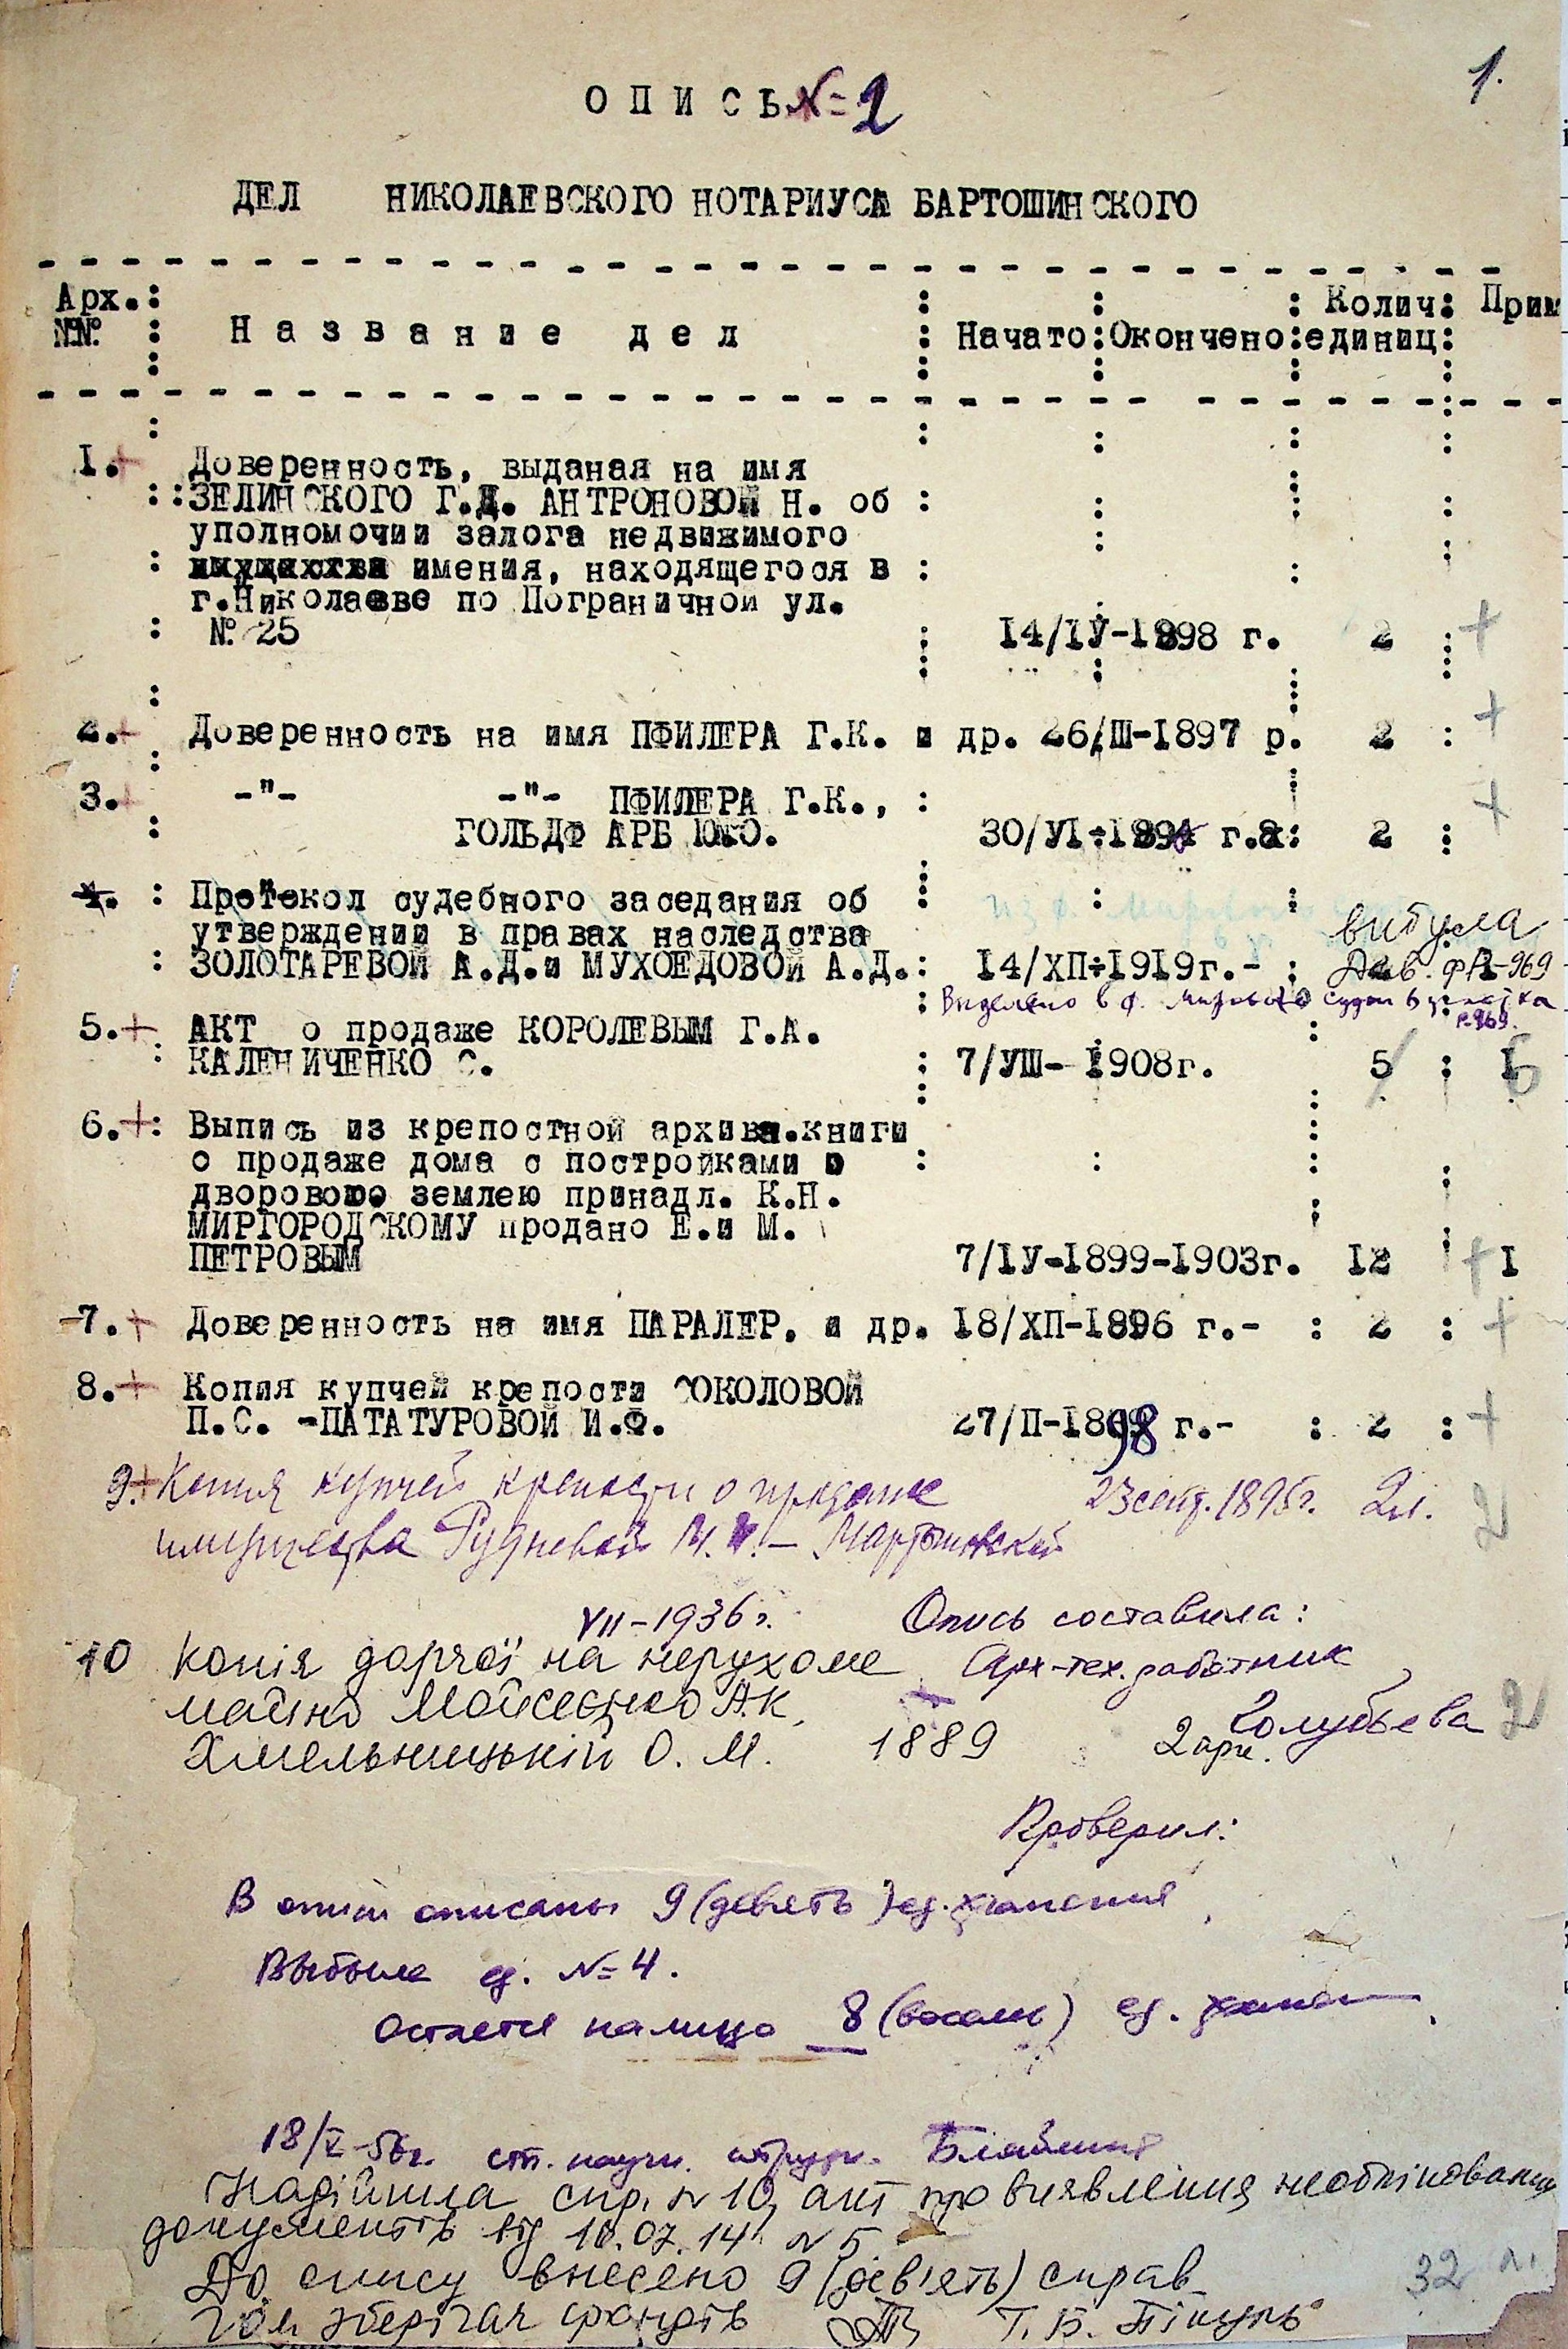 1.
ОПИСЬ №=2
ДЕЛ НИКОЛАЕВСКОГО НОТАРИУСА БАРТОШИНСКОГО
Арх. №№ Название дел Начато Окончено Колич. единиц Прим
1. Доверенность, выданая на имя
ЗЕЛИНСКОГО Г.Д. АНТРОНОВОЙ Н. об
уполномочии залога недвижимого
имения, находящегося в
г.Николаеве по Пограничной ул.
№ 25 14/IУ-1898 г. 2 +
2.+ Доверенность на имя ПФИЛЕРА Г.К. и др. 26/Ш-1897 р. 2 +
3.+ -"- -"- ПФИЛЕРА Г.К., +
ГОЛЬДФАРБ Ю.О. 30/УI-1894 г. 2
4. Протокол судебного заседания об
утверждении в правах наследства вибула
ЗОЛОТАРЕВОЙ А.Д.и МУХОЕДОВОЙ А.Д. 14/ХП-1919г.- Див. ф Р-969
Выделено в ф. Мирового судьи 6 участка
Р-969.
5.+ АКТ о продаже КОРОЛЕВЫМ Г.А.
КАЛЕНИЧЕНКО С. 7/УШ- 1908г. 5 6
6.+ Выпись из крепостной архива.книги
о продаже дома с постройками и
дворовою землею принадл. К.Н.
МИРГОРОДСКОМУ продано Е.и М.
ПЕТРОВЫМ 7/IУ-1899-1903г. 12 + I
7.+ Доверенность на имя ПАРАЛЕР. и др. 18/ХП-1896 г.- 2 +
8.+ Копия купчей крепости СОКОЛОВОЙ
П.С. -ПАТАТУРОВОЙ И.Ф. 27/П-1898 г.- 2 +
9.+ Копия купчей крепости о продаже 23 сент. 1895г. 2л. 2
имущества Рудневой М.И. –
VII-1936г. Опись составила:
10 Копія дарчої на нерухоме Арх-тех. работник
майно Мойсеєнко А.К. Голубьева 2
Хмельницькій О. М. 1889 2 арк.
Проверил:
В описи описаны 9 (девять) ед. хранения
Выбыла ед. №=4.
Остается налицо 8 (восемь) ед. хранен
18/V-56г. ст. научн. сотрудн.
Надійшла спр. № 10, акт про виявлення необлікованих
документів від 10.07.14 №5
До опису внесено 9 (дев'ять) справ 32 л.
Гол. зберігач фондів Т. Б.